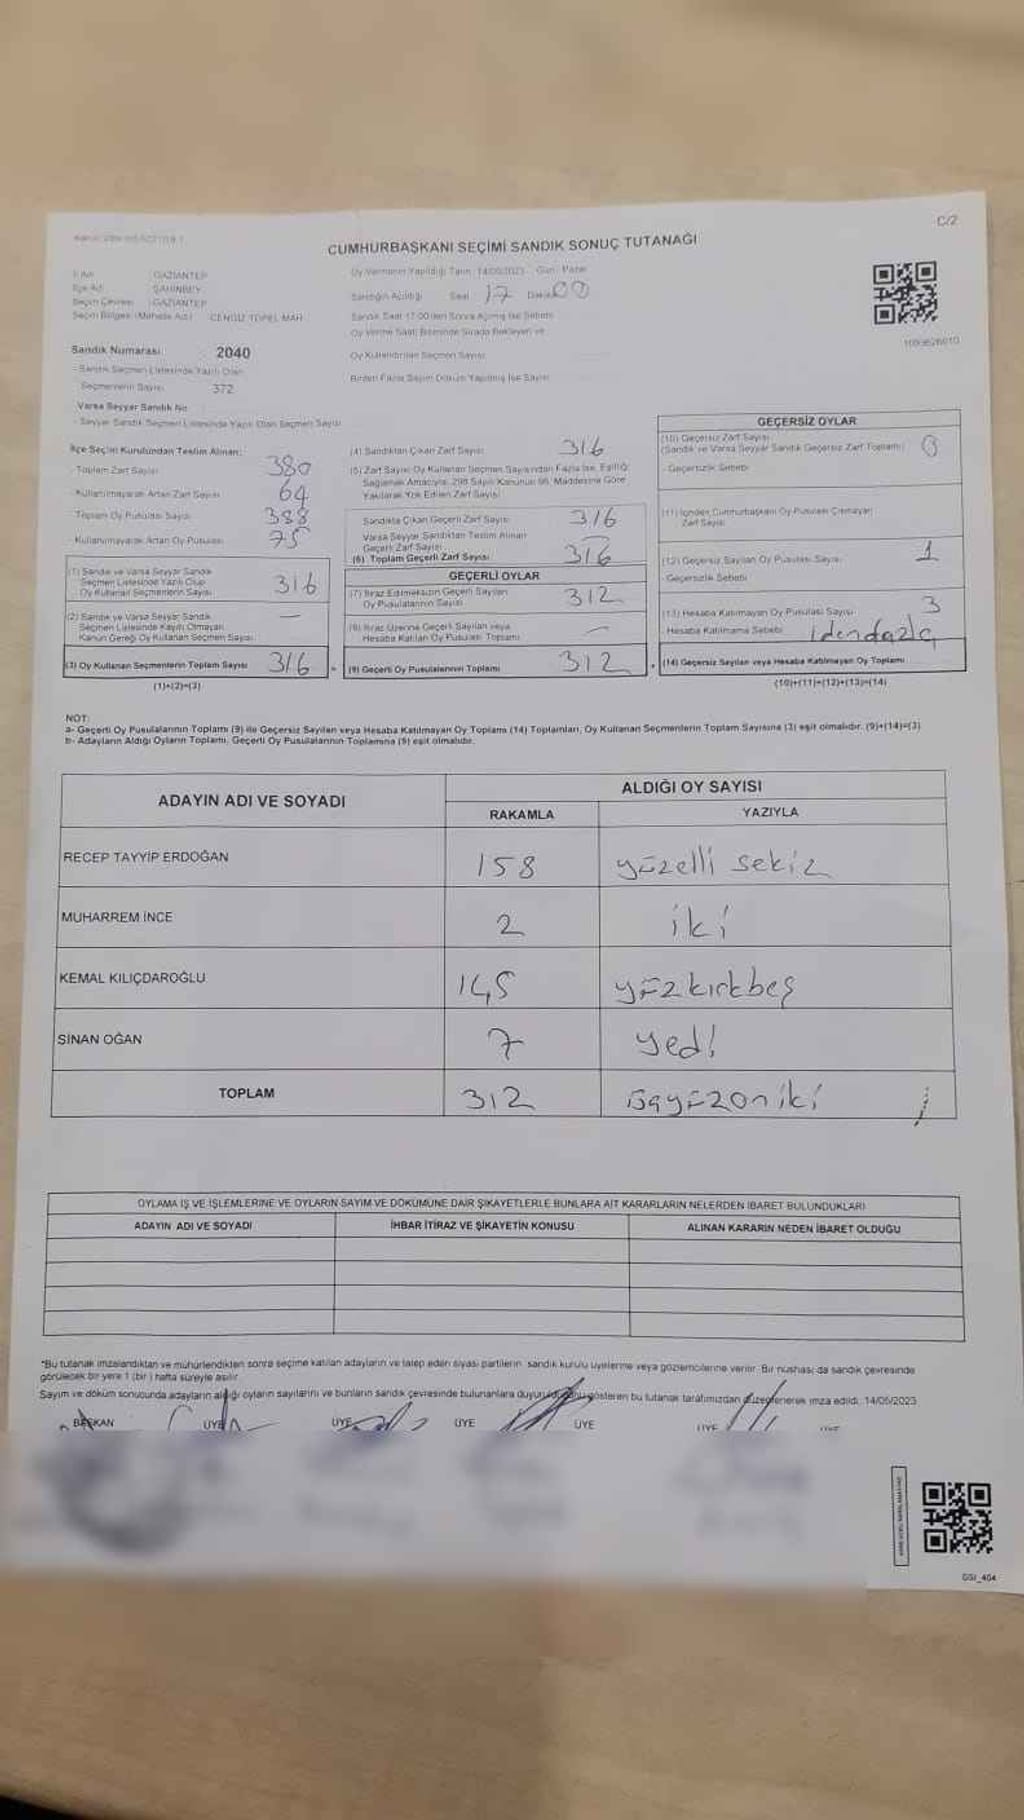 C/2
CUMHURBAŞKANI SEÇİMİ SANDIK SONUÇ TUTANAĞI
İli GAZİANTEP
İlçe Adı ŞAHİNBEY
Seçim Çevresi GAZİANTEP
Seçim Bölgesi (Mahalle Adı) CENGİZ TOPEL MAH.
Oy Vermenin Yapıldığı Tarih 14/05/2023 Gün: Pazar
Sandığın Açıldığı Saat 17 Dakika 00
Sandık Saat 17:00'den Sonra Açılmış İse Sebebi
Oy Verme Saati Bitiminde Sırada Bekleyen ve
Oy Kullandırılan Seçmen Sayısı
Birden Fazla Sayım Döküm Yapılmış İse Sayısı
Sandık Numarası 2040
- Sandık Seçmen Listesinde Yazılı Olan
Seçmenlerin Sayısı 372
Varsa Seyyar Sandık No
- Seyyar Sandık Seçmen Listesinde Yazılı Olan Seçmen Sayısı
İlçe Seçim Kurulundan Teslim Alınan:
- Toplam Zarf Sayısı 380
- Kullanılmayarak Artan Zarf Sayısı 64
- Toplam Oy Pusulası Sayısı 388
- Kullanılmayarak Artan Oy Pusulası 75
(1) Sandık ve Varsa Seyyar Sandık
Seçmen Listesinde Yazılı Olup
Oy Kullanan Seçmenlerin Sayısı 316
(2) Sandık ve Varsa Seyyar Sandık
Seçmen Listesinde Kayıtlı Olmayan
Kanun Gereği Oy Kullanan Seçmen Sayısı —
(3) Oy Kullanan Seçmenlerin Toplam Sayısı 316
(1)+(2)=(3)
(4) Sandıktan Çıkan Zarf Sayısı 316
(5) Zarf Sayısı Oy Kullanan Seçmen Sayısından Fazla İse, Eşitliği
Sağlamak Amacıyla, 298 Sayılı Kanunun 98. Maddesine Göre
Yakılarak Yok Edilen Zarf Sayısı
Sandıkta Çıkan Geçerli Zarf Sayısı 316
Varsa Seyyar Sandıktan Teslim Alınan
Geçerli Zarf Sayısı
(6) Toplam Geçerli Zarf Sayısı 316
GEÇERLİ OYLAR
(7) İtiraz Edilmeksizin Geçerli Sayılan
Oy Pusulalarının Sayısı 312
(8) İtiraz Üzerine Geçerli Sayılan veya
Hesaba Katılan Oy Pusulası Toplamı —
(9) Geçerli Oy Pusulalarının Toplamı 312
GEÇERSİZ OYLAR
(10) Geçersiz Zarf Sayısı
(Sandık ve Varsa Seyyar Sandık Geçersiz Zarf Toplamı) 0
- Geçersizlik Sebebi
(11) İçinden Cumhurbaşkanı Oy Pusulası Çıkmayan
Zarf Sayısı
(12) Geçersiz Sayılan Oy Pusulası Sayısı 1
- Geçersizlik Sebebi
(13) Hesaba Katılmayan Oy Pusulası Sayısı 3
- Hesaba Katılmama Sebebi 1'den fazla
(14) Geçersiz Sayılan veya Hesaba Katılmayan Oy Toplamı
(10)+(11)+(12)+(13)=(14)
NOT:
a- Geçerli Oy Pusulalarının Toplamı (9) ile Geçersiz Sayılan veya Hesaba Katılmayan Oy Toplamı (14) Toplamları, Oy Kullanan Seçmenlerin Toplam Sayısına (3) eşit olmalıdır. (9)+(14)=(3)
b- Adayların Aldığı Oyların Toplamı, Geçerli Oy Pusulalarının Toplamına (9) eşit olmalıdır.
ADAYIN ADI VE SOYADI
ALDIĞI OY SAYISI
RAKAMLA YAZIYLA
RECEP TAYYİP ERDOĞAN 158 yüzelli sekiz
MUHARREM İNCE 2 iki
KEMAL KILIÇDAROĞLU 145 yüzkırkbeş
SİNAN OĞAN 7 yedi
TOPLAM 312 üçyüzoniki
OYLAMA İŞ VE İŞLEMLERİNE VE OYLARIN SAYIM VE DÖKÜMÜNE DAİR ŞİKAYETLERLE BUNLARA AİT KARARLARIN NELERDEN İBARET BULUNDUKLARI
ADAYIN ADI VE SOYADI İHBAR İTİRAZ VE ŞİKAYETİN KONUSU ALINAN KARARIN NEDEN İBARET OLDUĞU
*Bu tutanak imzalandıktan ve mühürlendikten sonra seçime katılan adayların ve talep eden siyasi partilerin sandık kurulu üyelerine veya gözlemcilerine verilir. Bir nüshası da sandık çevresinde
görülecek bir yere 1 (bir) hafta süreyle asılır.
Sayım ve döküm sonucunda adayların aldığı oyların sayılarını ve bunların sandık çevresinde bulunanlara duyurulduğunu gösteren bu tutanak tarafımızdan düzenlenerek imza edildi. 14/05/2023
BAŞKAN ÜYE ÜYE ÜYE ÜYE ÜYE ÜYE
GSI_404